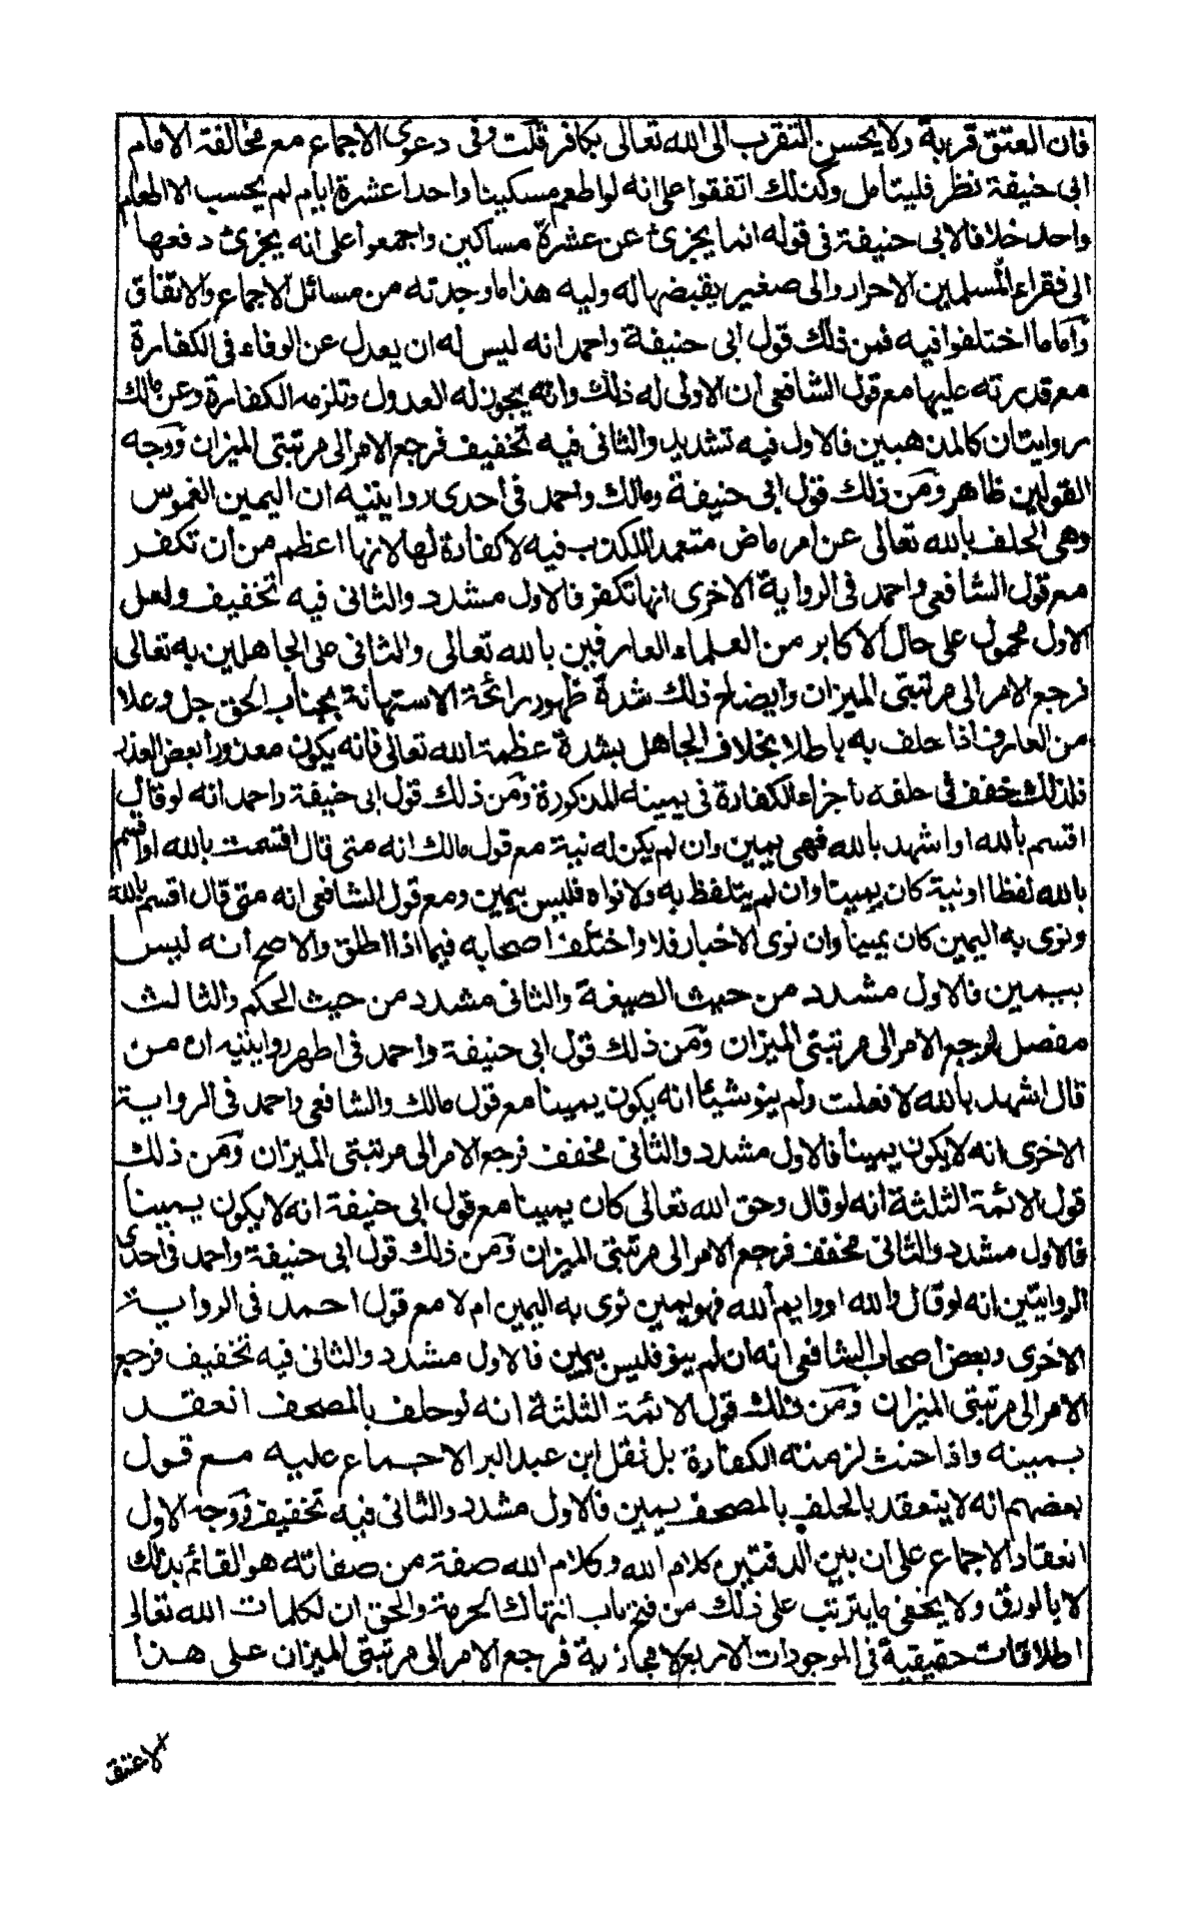 فان العتق قربة ولا يحسن التقرب الى الله تعالى بكافر قلت وفى دعوى الاجماع مع مخالفة الامام
ابى حنيفة نظر فليتامل وكذلك اتفقوا على انه لو اطعم مسكينا واحدا عشرة ايام لم يحسب الا اطعام
واحد خلافا لابى حنيفة فى قوله انما يجزئ عن عشرة مساكين واجمعوا على انه يجزئ دفعها
الى فقراء المسلمين الاحرار والى صغير يقبضها له وليه هذا ما وجدته من مسائل الاجماع والاتفاق
واما ما اختلفوا فيه فمن ذلك قول ابى حنيفة واحمد انه ليس له ان يعدل عن الوفاء فى الكفارة
مع قدرته عليها مع قول الشافعى ان الاولى له ذلك وانه يجوز له العدول وتلزمه الكفارة وعن مالك
روايتان كالمذهبين فالاول فيه تشديد والثانى فيه تخفيف فرجع الامر الى مرتبتى الميزان ووجه
القولين ظاهر ومن ذلك قول ابى حنيفة ومالك واحمد فى احدى روايتيه ان اليمين الغموس
وهى الحلف بالله تعالى عن امر ماض متعمد الكذب فيه لا كفارة لها لانها اعظم من ان تكفر
مع قول الشافعى واحمد فى الرواية الاخرى انها تكفر فالاول مشدد والثانى فيه تخفيف ولعل
الاول محمول على حال الاكابر من العلماء العارفين بالله تعالى والثانى على الجاهلين به تعالى
فرجع الامر الى مرتبتى الميزان وايضاح ذلك شدة ظهور رائحة الاستهانة بجناب الحق جل وعلا
من العارف اذا حلف به باطلا بخلاف الجاهل بشدة عظمة الله تعالى فانه يكون معذورا بعض العذر
فلذلك خفف فى حلفه باجزاء الكفارة فى يمينه المذكورة ومن ذلك قول ابى حنيفة واحمد انه لو قال
اقسم بالله او اشهد بالله فهى يمين وان لم يكن له نية مع قول مالك انه متى قال اقسمت بالله او اقسم
بالله لفظا او نية كان يمينا وان لم يتلفظ به ولا نواه فليس بيمين ومع قول الشافعى انه متى قال اقسم بالله
ونوى به اليمين كان يمينا وان نوى الاخبار فلا واختلف اصحابه فيما اذا اطلق والاصح انه ليس
بيمين فالاول مشدد من حيث الصيغة والثانى مشدد من حيث الحكم والثالث
مفصل فرجع الامر الى مرتبتى الميزان ومن ذلك قول ابى حنيفة واحمد فى اظهر روايتيه ان من
قال اشهد بالله لا فعلت ولم ينو شيئا انه يكون يمينا مع قول مالك والشافعى واحمد فى الرواية
الاخرى انه لا يكون يمينا فالاول مشدد والثانى مخفف فرجع الامر الى مرتبتى الميزان ومن ذلك
قول الائمة الثلثة انه لو قال وحق الله تعالى كان يمينا مع قول ابى حنيفة انه لا يكون يمينا
فالاول مشدد والثانى مخفف فرجع الامر الى مرتبتى الميزان ومن ذلك قول ابى حنيفة واحمد فى احدى
الروايتين انه لو قال والله او وايم الله فهو يمين نوى به اليمين ام لا مع قول احمد فى الرواية
الاخرى وبعض اصحاب الشافعى انه ان لم ينو فليس بيمين فالاول مشدد والثانى فيه تخفيف فرجع
الامر الى مرتبتى الميزان ومن ذلك قول الائمة الثلثة انه لو حلف بالمصحف انعقد
يمينه واذا حنث لزمته الكفارة بل نقل ابن عبد البر الاجماع عليه مع قول
بعضهم انه لا ينعقد بالحلف بالمصحف يمين فالاول مشدد والثانى فيه تخفيف ووجه الاول
انعقاد الاجماع على ان بين الدفتين كلام الله وكلام الله صفة من صفاته هو القائم بذلك
لا بالورق ولا يخفى ما يترتب على ذلك من فتح باب انتهاك الحرمة والحق ان لكلمات الله تعالى
اطلاقات حقيقية فى الموجودات الاربع لا مجازية فرجع الامر الى مرتبتى الميزان على هذا
لاعتق